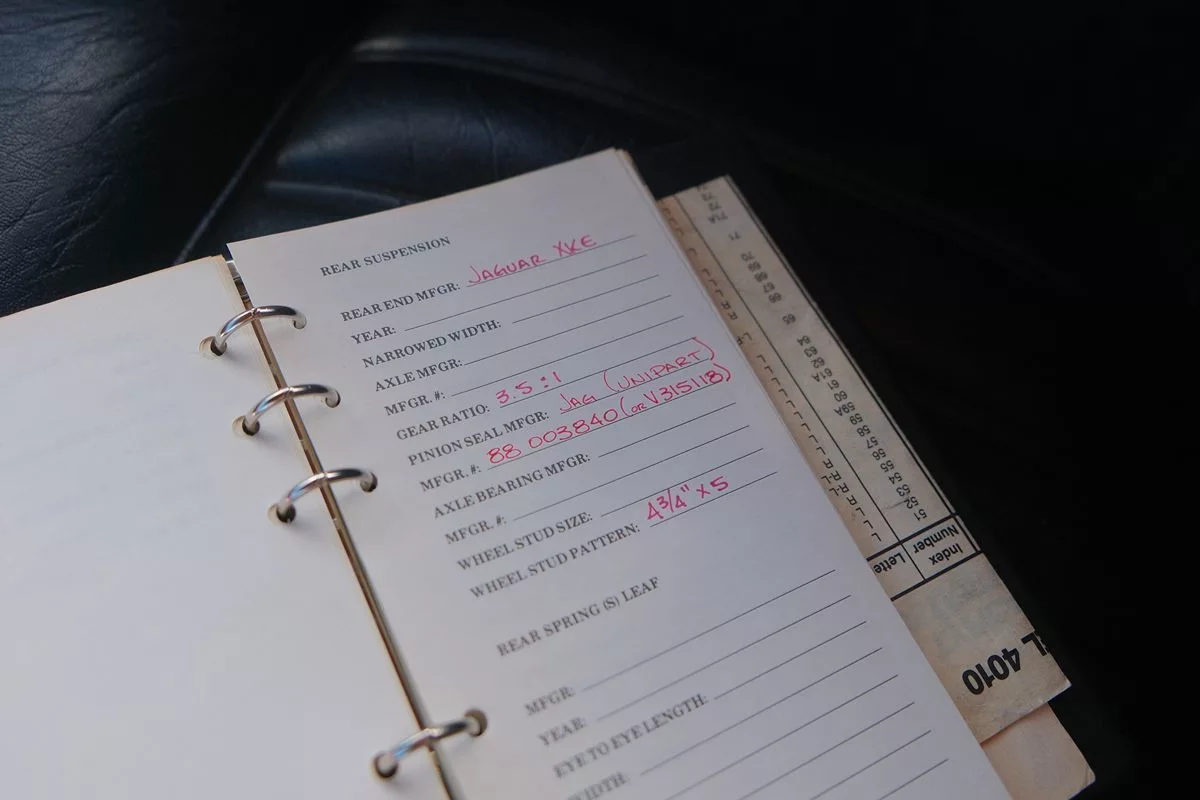 REAR SUSPENSION
REAR END MFGR: JAGUAR XKE
YEAR:
NARROWED WIDTH:
AXLE MFGR:
MFGR. #:
GEAR RATIO: 3.5:1
PINION SEAL MFGR: JAG (UNIPART)
MFGR. #: 88 003840 (OR V315118)
AXLE BEARING MFGR:
MFGR. #:
WHEEL STUD SIZE:
WHEEL STUD PATTERN: 4 3/4" X 5
REAR SPRING (S) LEAF
MFGR:
YEAR:
EYE TO EYE LENGTH:
4010
Index
Number
51
52
53
54
55
56
57
58
59A
60
61
61A
62
63
64
65
66
67
68
69
70
71
71A
72